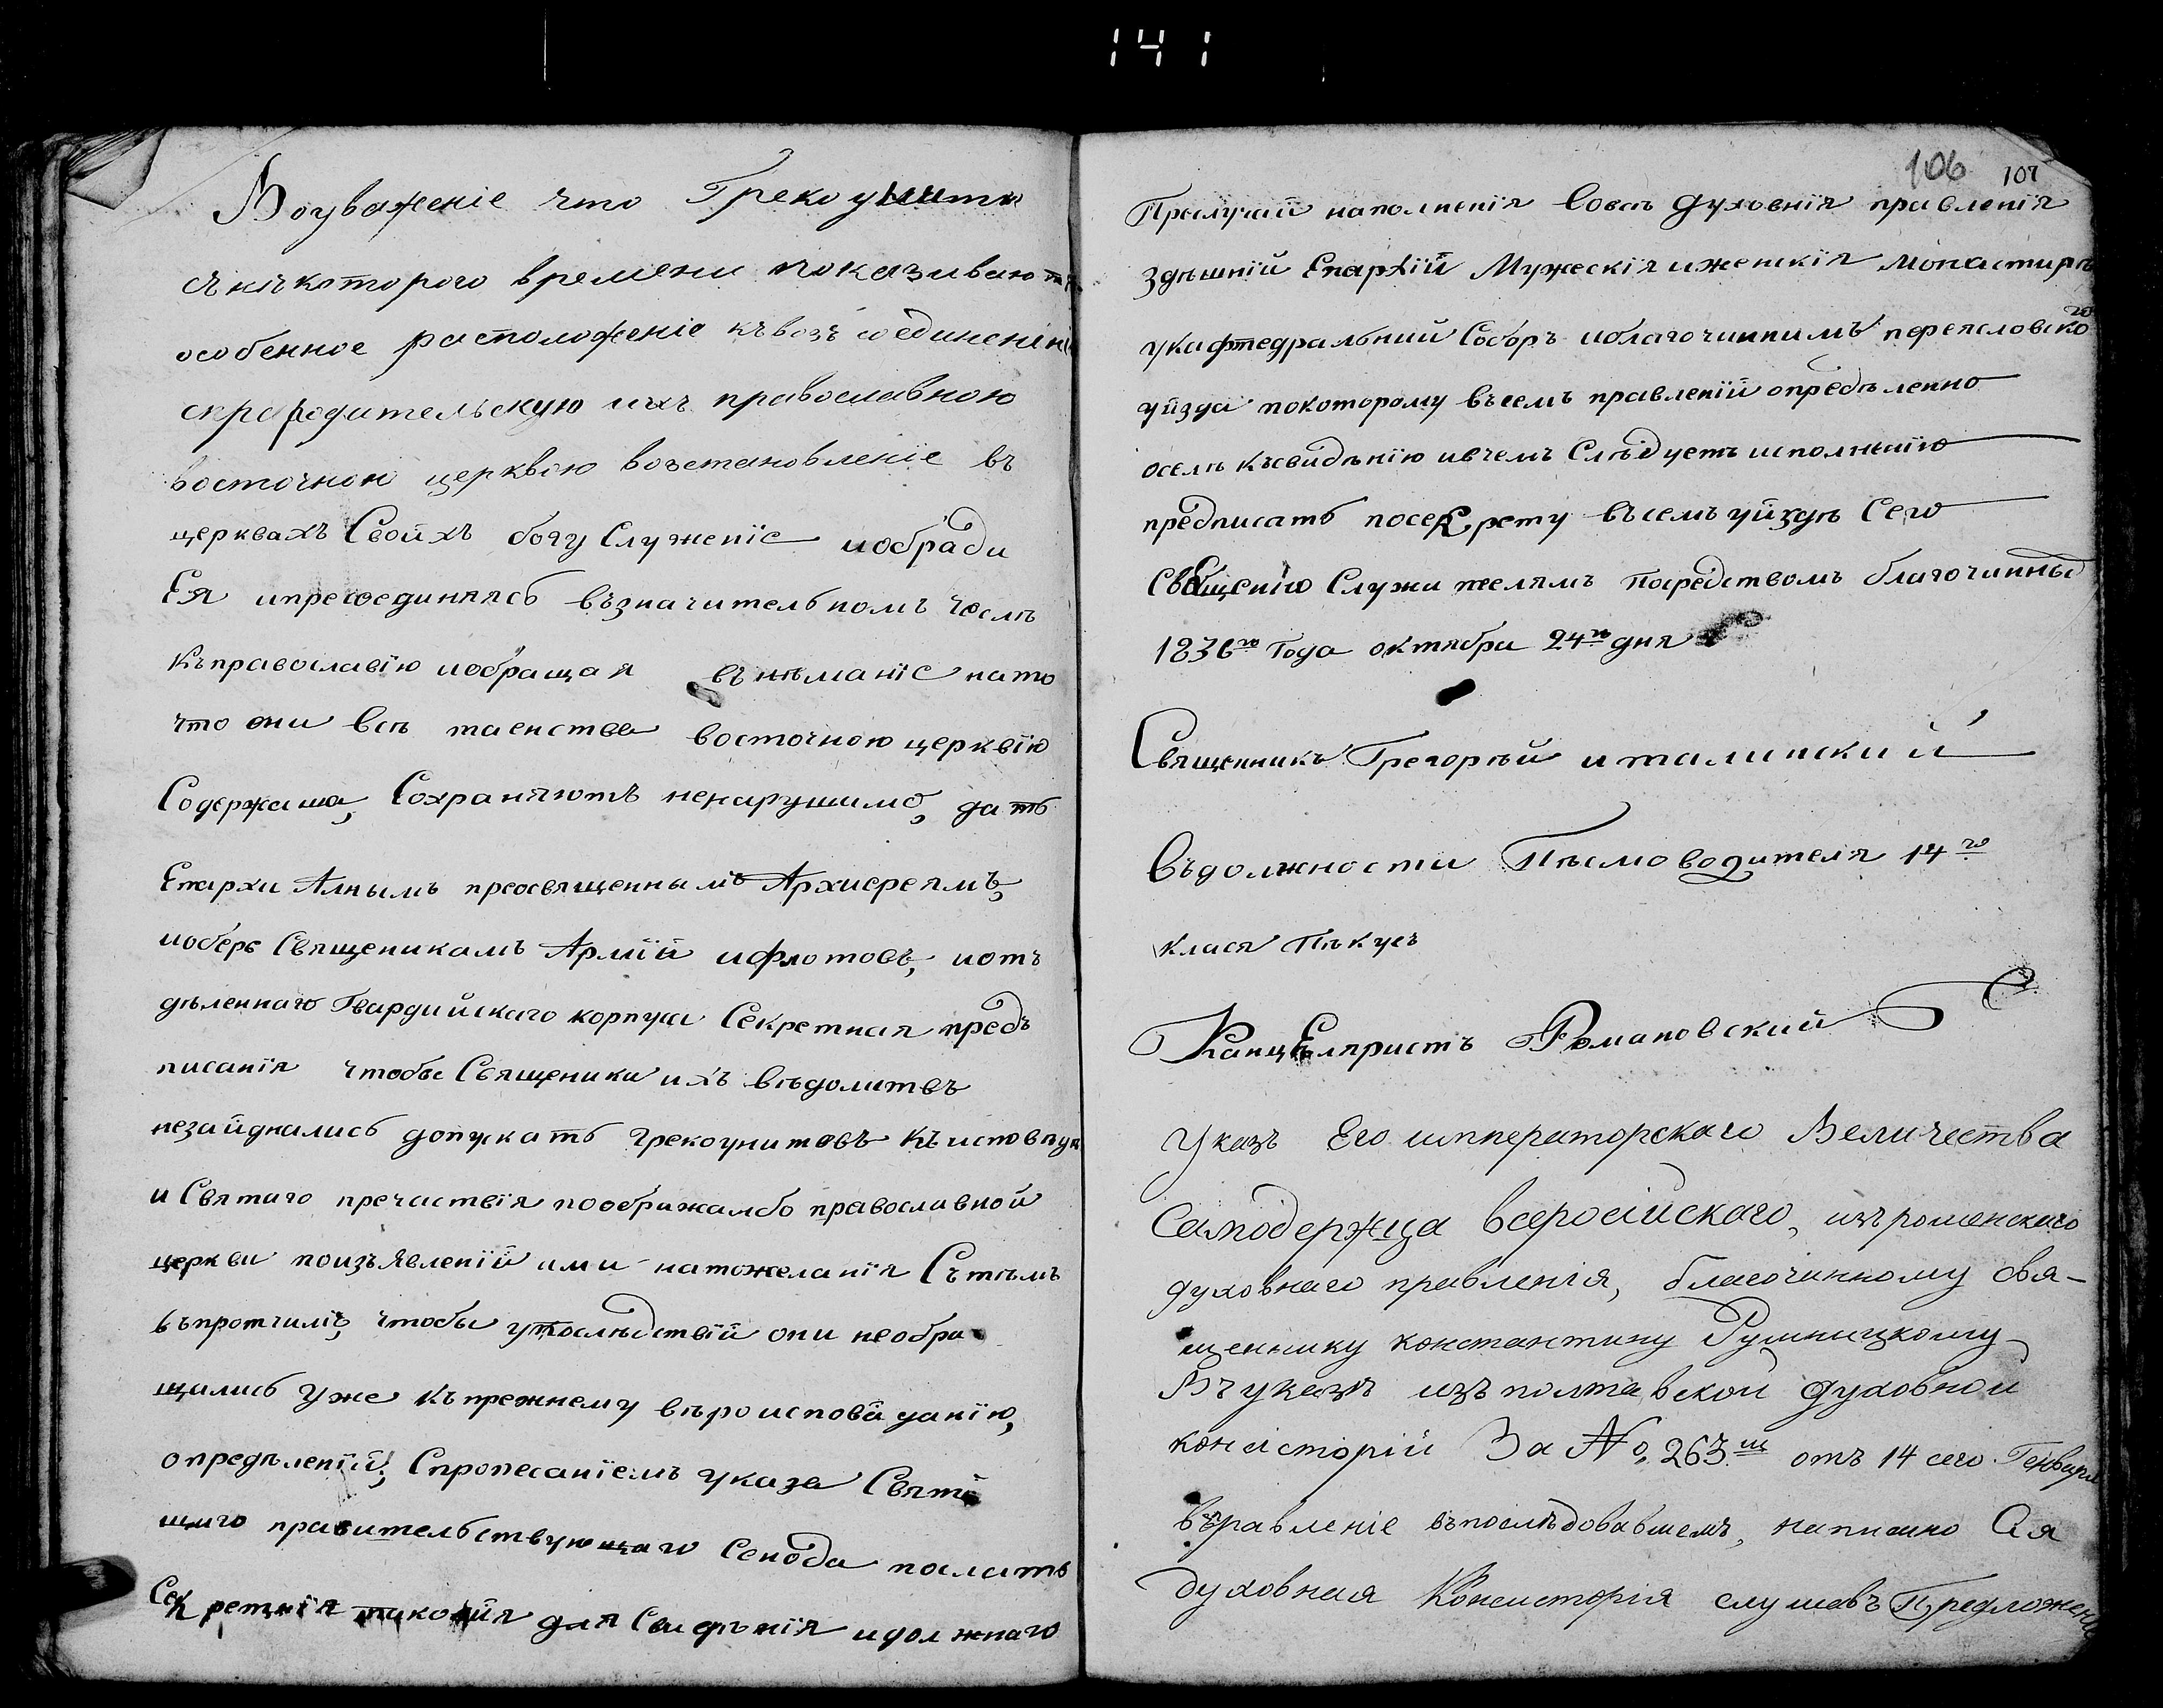 141
Воуваженіе что Грекоунити
снѣкоторого времени показиваютъ
особенное расположеніе къвозъсоединенію
спрародительскую ихъ православною
восточною церквою возстановленіе въ
церквахъ Свойхъ богу Служеніе иобради
Ея ипресоединяясь възначительномъ числѣ
Къправославію иобращая вънѣманіе нато
что они всѣ таенства восточною церквію
Содержима, Сохраняютъ ненарушимо, дать
Епархиалнымъ преосвященнымъ Архиереямъ,
иоберъ Священикамъ Армій ифлотовъ, иотъ
дѣленнаго Гвардийскаго корпуса Секретная предъ
писанія чтобы Священики ихъ вѣдомитвъ
незайднались допускать грекоунитовъ къисповѣди
и Святаго пречастія пообрижамбо православной
церкви поизъявленій ими натожеланія Сътѣмъ
въпротчимъ, чтобы упослѣдствій они необра
щались уже къпрежнему вѣроисповѣданію,
опредѣленій; Спрописаніемъ указа Святѣ
шиго правительствующаго Сенода послать
Секретнія таковія для Сведѣнія идолжнаго
106 107
Прослучай наполненія вовсѣ духовнія правленія
здѣшній Епархій Мужескія иженскія монастирѣ
укафтедральний Соборъ иблагочиннимъ переясловского
уйзда покоторому въсемъ правленій опредѣленно
осемъ къвидѣнію ивчемъ Слѣдуетъ исполненію
предписать посекрету въсемъ уйздѣ Сего
Священію Служителямъ посредствомъ благочинныѣ
1836го Года октября 24го дня
Священникъ Грегорѣй италинский
Въдолжности Писмоводителя 14го
класа Пѣкусъ
Канцеляристъ Романовский
Указъ Его императорскаго Величества
Самодержца всеросийскаго, изъроменскаго
духовнаго правленія, благочинному свя-
щеннику константину Рушницкому
Въуказѣ изъполтавской духовной
консисторіи За №, 263м отъ 14 сего Генваря
въправленіе въпослѣдовавшемъ, написано Сія
духовная Консисторія слушавъ Предложеніе